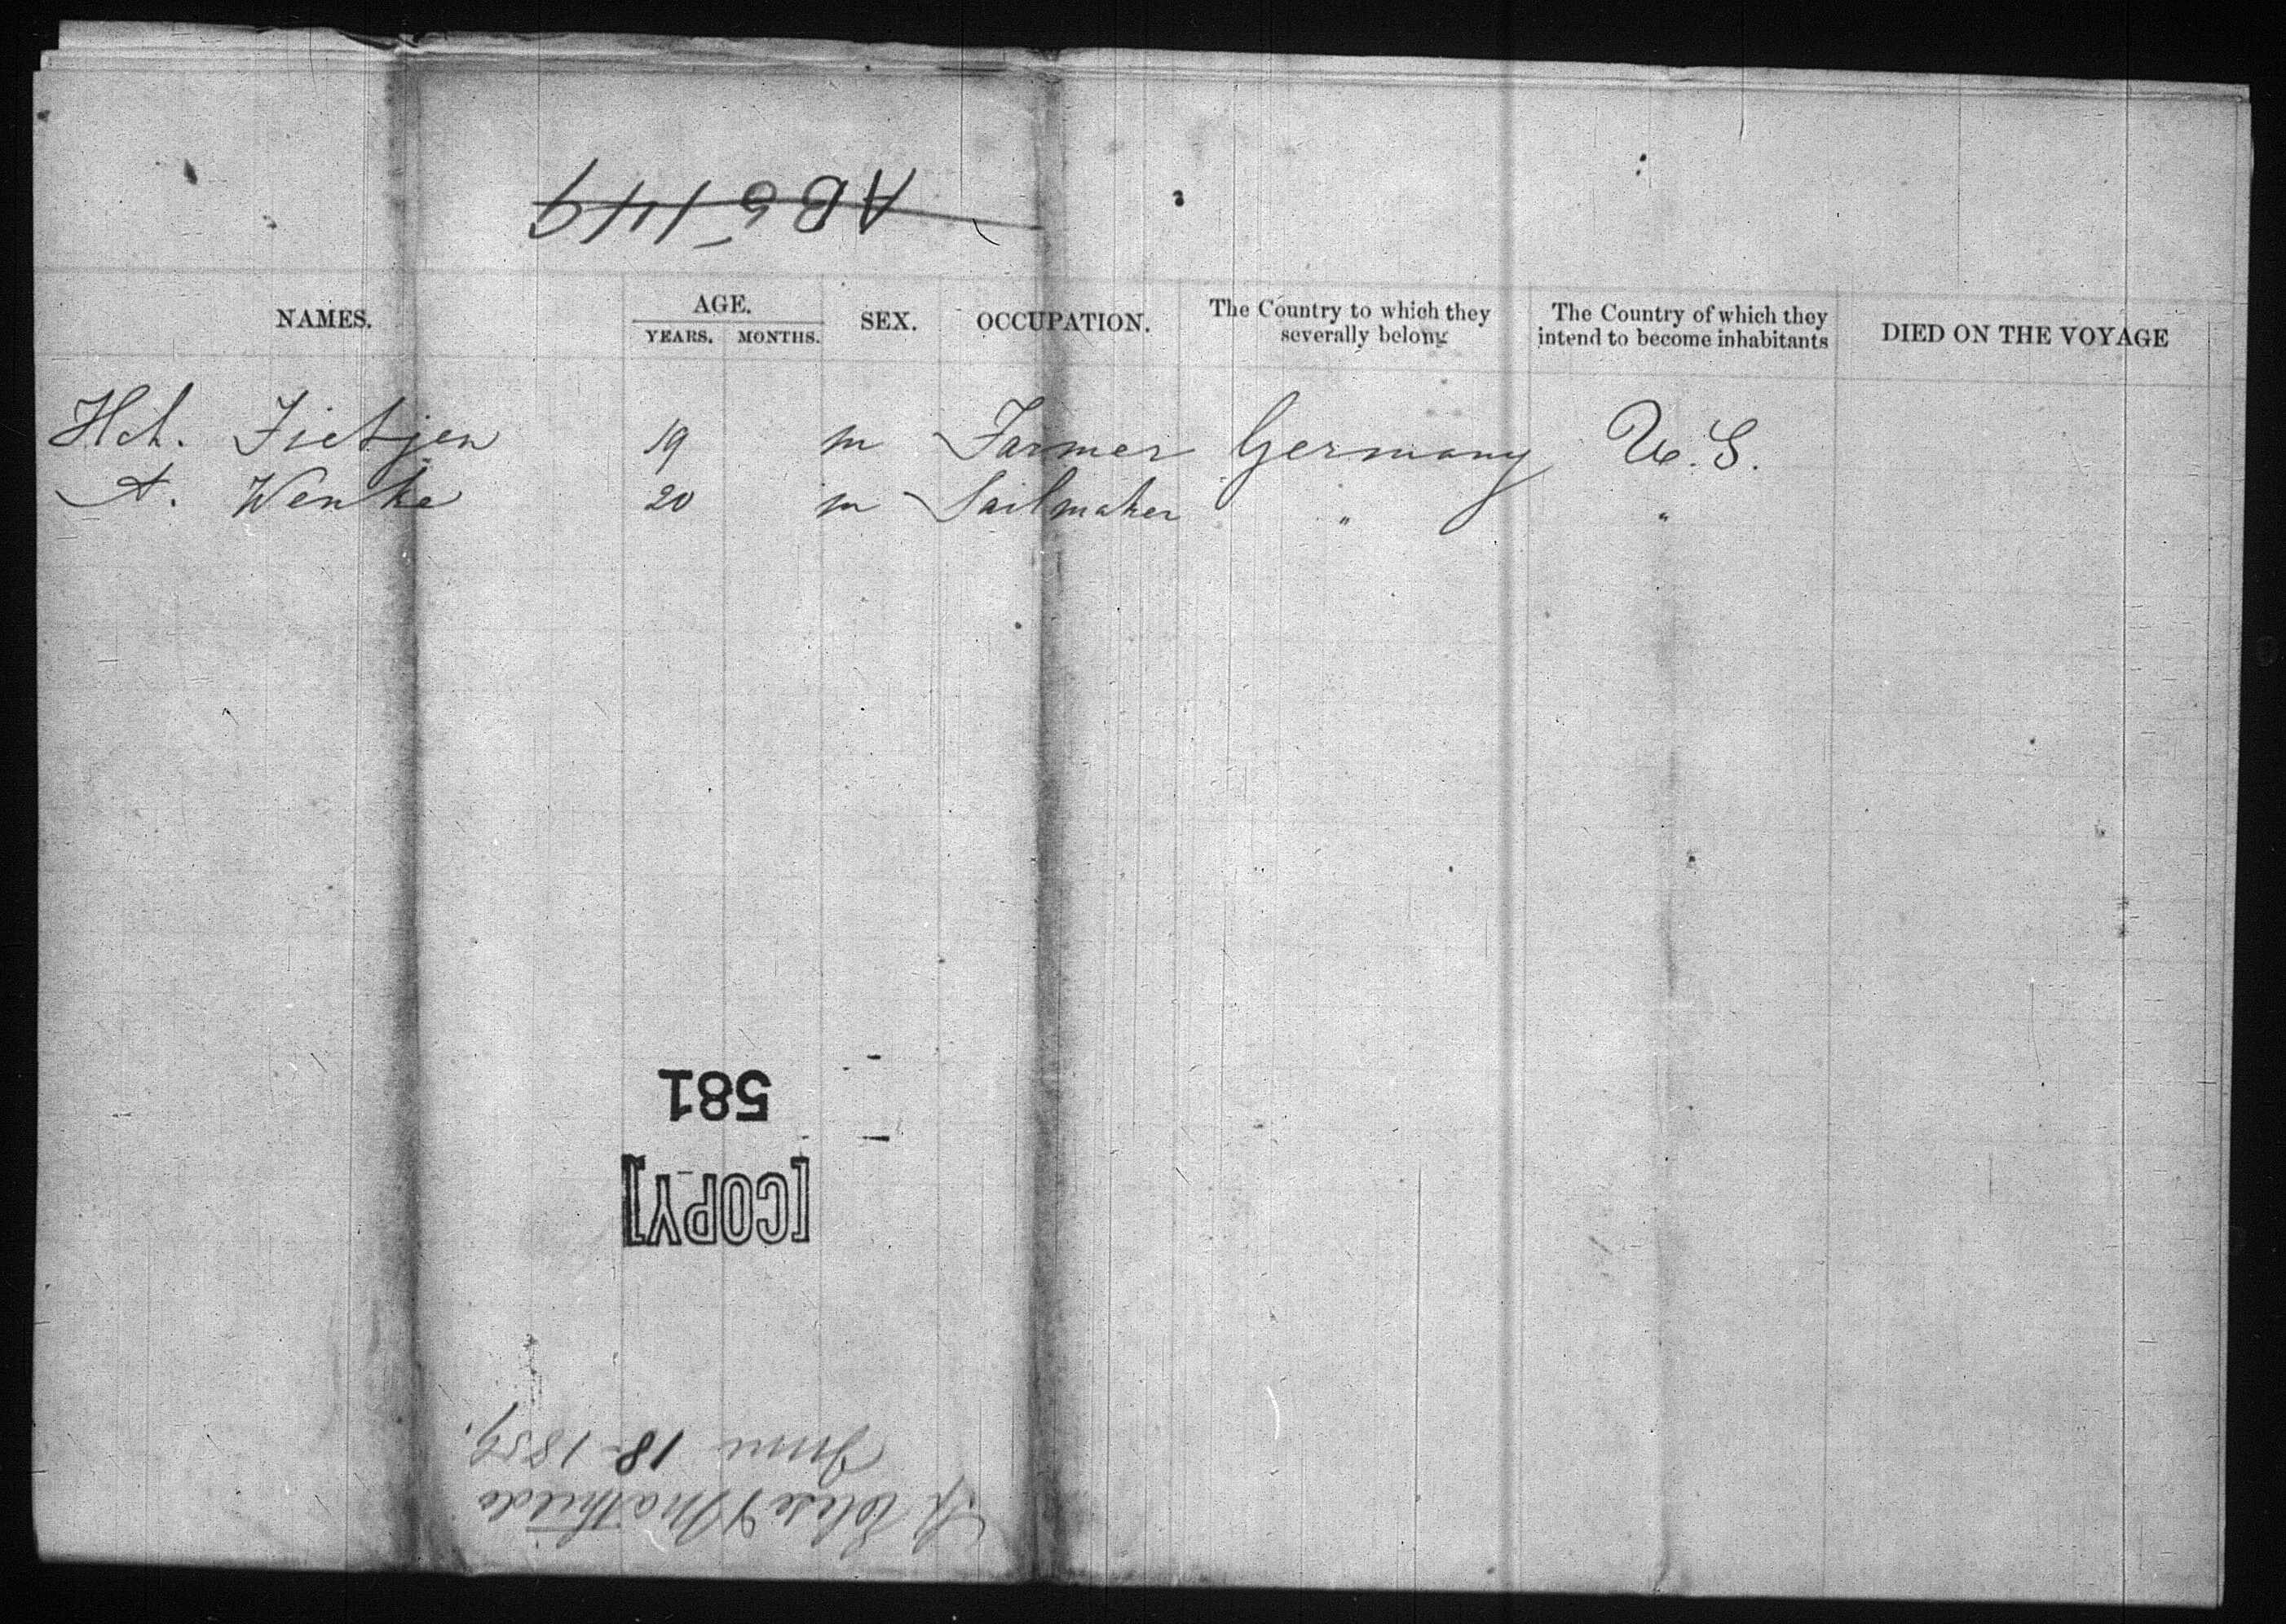 AB5149
NAMES. AGE. YEARS. MONTHS. SEX. OCCUPATION. The Country to which they severally belong The Country of which they intend to become inhabitants DIED ON THE VOYAGE
Hch. Tietjen 19 m Farmer Germany U.S.
A. Wenke 20 m Sailmaker " "
581
[COPY]
Elise & Mathilde
June 18-1859.